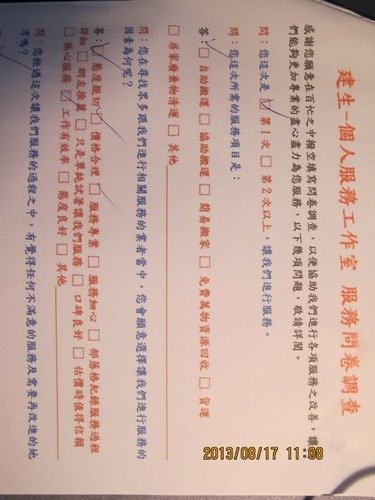 建生-個人服務工作室 服務問卷調查
感謝您願意在百忙之中撥空填寫問卷調查，以便協助我們進行各項服務之改善，讓
們能夠更加專業的盡心盡力為您服務，以下幾項問題，敬請詳閱。
問：您這次是 ☑ 第1次 □ 第2次以上，讓我們進行服務。
問：您這次所需的服務項目是：
答：□ 自助搬運 □ 協助搬運 □ 簡易搬家 □ 免費舊物資源回收 □ 貨運
□ 居家廢棄物清運 □ 其他
問：您在尋找眾多跟我們進行相關服務的業者當中，您會願意選擇讓我們進行服務的
因素為何呢？
答：☑ 態度親切 ☑ 價格合理 ☑ 服務專業 □ 服務細心 □ 部落格紀錄服務過程
詳細 □ 網友推薦 □ 只是單純試著讓我們服務 □ 口碑良好 □ 估價時值得信賴
□ 熱心服務 ☑ 工作有效率 □ 態度良好 □ 其他
問：您經過這次讓我們服務的過程之中，有覺得任何不滿意的服務及需要再改進的地
方嗎？
2013/08/17